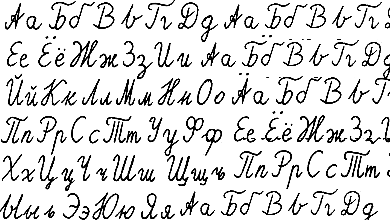 Аа Бб Вв Гг Дд Аа Бб Вв Гг
Ее Ёё Жж Зз Ии Аа Бб Вв Гг Дд
Йй Кк Лл Мм Нн Оо Аа Бб Вв
Пп Рр Сс Тт Уу Фф Ее Ёё Жж Зз
Хх Цц Чч Шш Щщ ъ Пп Рр Сс Тт
Ыы ь Ээ Юю Яя Аа Бб Вв Гг Дд